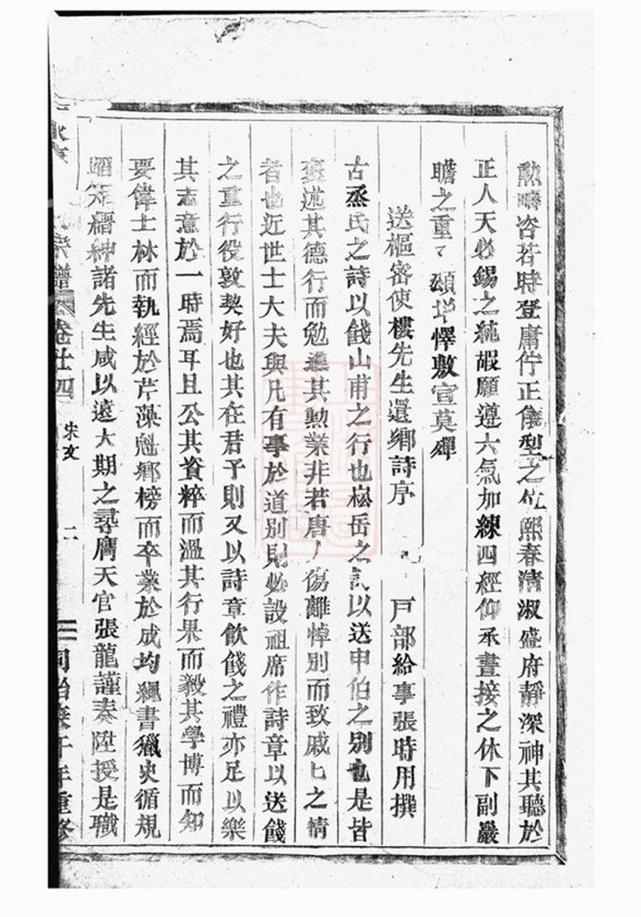 勲疇咨若時登庸佇正儀型之化熙春清淑盛府靜深神其聽於
正人天必錫之純嘏願遵六氣加練四經仰承晝接之休下副巖
瞻之重々頌懌敷宣莫殫
送樞密使樓先生還鄉詩序 戸部給事張時用撰
古烝氏之詩以餞山甫之行也崧岳之以送申伯之別也是皆
褒述其德行而勉進其勲業非若唐人傷離悼別而致戚匕之情
者也近世士大夫與凡有事於道別則必設祖席作詩章以送餞
之重行役敦契好也其在君子則又以詩章飲餞之禮亦足以樂
其志意於一時焉耳且公其資粹而溫其行果而毅其學博而知
要偉士林而執經於芹藻魁鄉榜而卒業於成均繩書獵史循規
矩縉紳諸先生咸以遠大期之尋膺天官張龍謹奏陞授是職
宗譜 卷廿四 宋文 二 同治庚午年重修